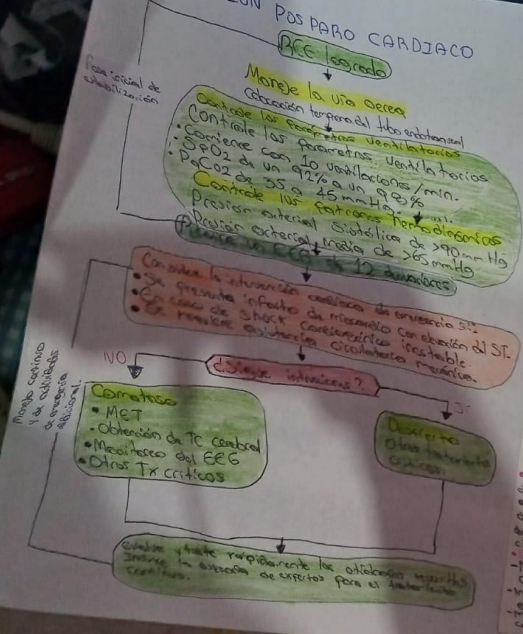 ION POSPARO CARDIACO
RCE logrado
Maneje la vía aerea
colocación temprana del tubo endotraqueal
Controle los parametros ventilatorios
Controle los parametros ventilatorios
• Comience con 10 ventilaciones/min.
• SpO2 de un 92% a un 98%
• PaCO2 de 35 a 45 mmHg.
Controle los patrones hemodinamicos
Presion arterial Sistólica de >90 mm Hg
Presion arterial Media de >65 mmHg
un ECG de 12 derivaciones
Fase inicial de
estabilización
Considere la intervención cardiaca de emergencia si:
• Se presenta infarto de miocardio con elevación del ST.
• En caso de Shock cardiogénico inestable
• Se requiere asistencia circulatoria mecanica.
¿Sigue intrucciones?
NO
Si
Manejo continuo
y de actividades
de emergencia
adicional.
Comatoso
• MET
• Obtención de TC cerebral
• Monitoreo del EEG
• Otros Tx criticos
Despierto
Otros tratamientos
criticos.
Evalue y trate rapidamente las etiologías
de expertos para el tratamiento
continuo.